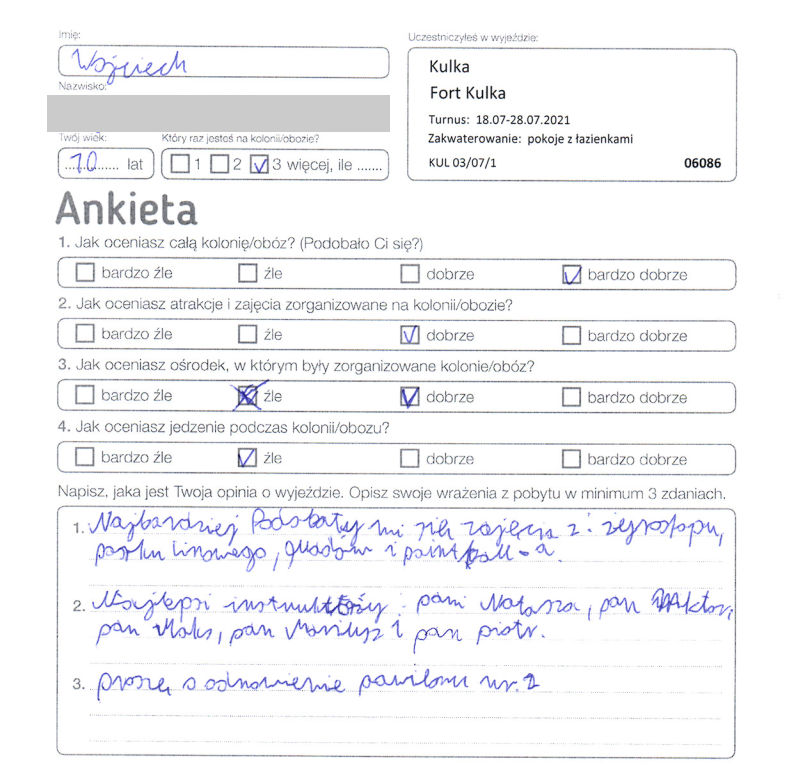 Imię:
Wojciech
Nazwisko:
Twój wiek:
10 lat
Który raz jesteś na kolonii/obozie?
1 2 3 więcej, ile .......
Uczestniczyłeś w wyjeździe:
Kulka
Fort Kulka
Turnus: 18.07-28.07.2021
Zakwaterowanie: pokoje z łazienkami
KUL 03/07/1 06086
Ankieta
1. Jak oceniasz całą kolonię/obóz? (Podobało Ci się?)
bardzo źle źle dobrze bardzo dobrze
2. Jak oceniasz atrakcje i zajęcia zorganizowane na kolonii/obozie?
bardzo źle źle dobrze bardzo dobrze
3. Jak oceniasz ośrodek, w którym były zorganizowane kolonie/obóz?
bardzo źle źle dobrze bardzo dobrze
4. Jak oceniasz jedzenie podczas kolonii/obozu?
bardzo źle źle dobrze bardzo dobrze
Napisz, jaka jest Twoja opinia o wyjeździe. Opisz swoje wrażenia z pobytu w minimum 3 zdaniach.
1. Najbardziej Podobały mi się zajęcia z:
parku linowego, quadów i paintball-a.
2. Najlepsi instruktorzy: pani Natasza, pan Wiktor,
pan Maks, pan Mariusz i pan piotr.
3. proszę o odnowienie pawilonu nr. 2